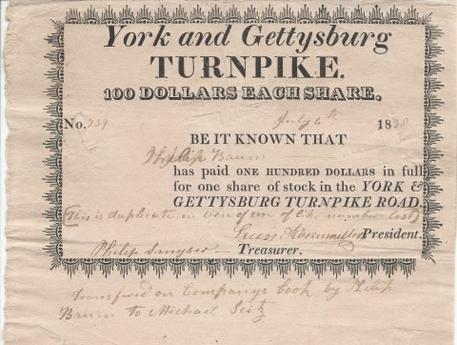 York and Gettysburg
TURNPIKE.
100 DOLLARS EACH SHARE.
No. 739 July 6th 1838
BE IT KNOWN THAT
Philip Baum
has paid ONE HUNDRED DOLLARS in full
for one share of stock in the YORK &
GETTYSBURG TURNPIKE ROAD
(This is duplicate in lieu of one of like number lost)
President.
Philip Smyser Treasurer.
transfired on Companys book by Philip
Baum to Michael Seitz